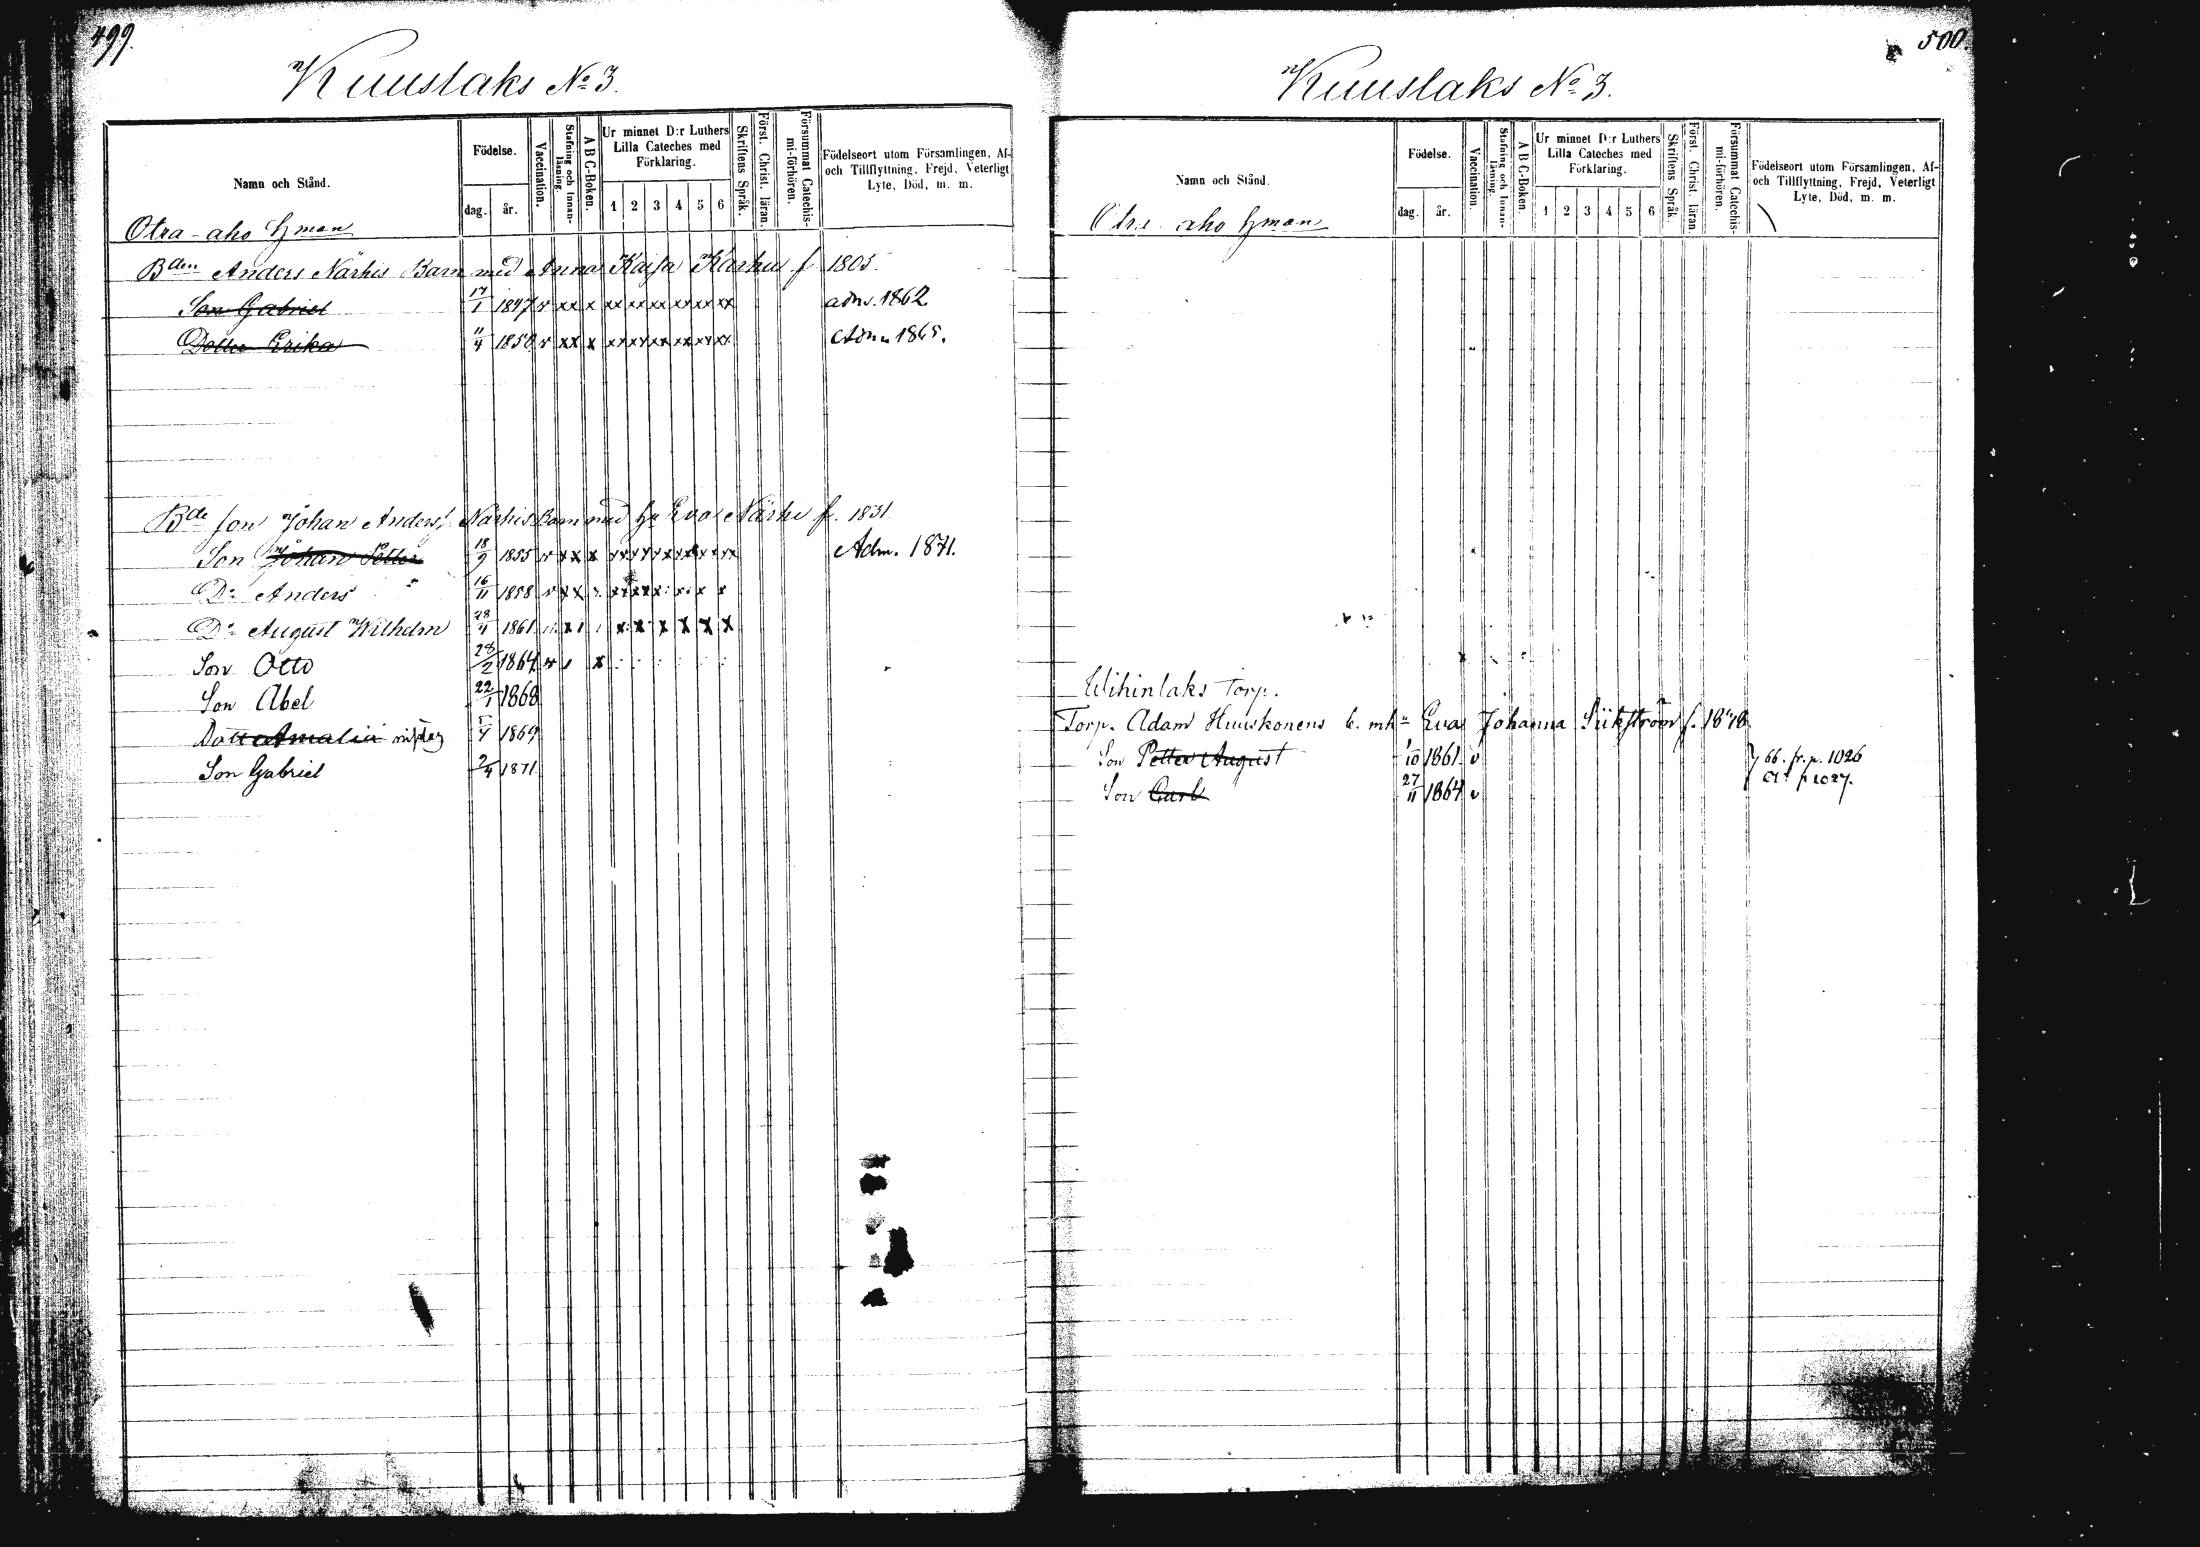 499.
Kuuslaks No 3.
Namn och Stånd.
Födelse.
dag.
år.
Vaccination.
Stafning och Innan-läsning.
A B C-Boken.
Ur minnet D:r Luthers
Lilla Cateches med
Förklaring.
1 2 3 4 5 6
Skriftens Språk.
Först. Christ. läran.
Försummat Catechis-
mi-förhören.
Födelseort utom Församlingen, Af-
och Tillflyttning, Frejd, Veterligt
Lyte, Död, m. m.
Otra-aho Hman
Bden Anders Närhis Barn med Anna Kajsa Karhu f 1805.
Son Gabriel 17/1 1847 v xx x xx xx xx xx xx xx adm. 1862
Dotter Erika 11/4 1850 v xx x xx xx xx xx xx xx Adm. 1865.
Bde son Johan Anders Närhis Barn med Hu Eva Närhi f. 1831
Son Johan Petter 18/9 1855 v xx x Adm. 1871.
Do Anders 16/11 1858 v xx
Do August Wilhelm 28/4 1861
Son Otto 28/2 1864 v x
Son Abel 22/1 1868
Dott Amalia 5/4 1869
Son Gabriel 2/4 1871
500.
Kuuslaks No 3.
Namn och Stånd.
Födelse.
dag.
år.
Vaccination.
Stafning och Innan-läsning.
A B C-Boken.
Ur minnet D:r Luthers
Lilla Cateches med
Förklaring.
1 2 3 4 5 6
Skriftens Språk.
Först. Christ. läran.
Försummat Catechis-
mi-förhören.
Födelseort utom Församlingen, Af-
och Tillflyttning, Frejd, Veterligt
Lyte, Död, m. m.
Otra-aho Hman
Wihinlaks Torp.
Torp. Adam Huuskonens b. mh Eva Johanna
Son Petter August 1/10 1861 v 66. fr. p. 1026
Son Carl 27/11 1864 v p 1027.